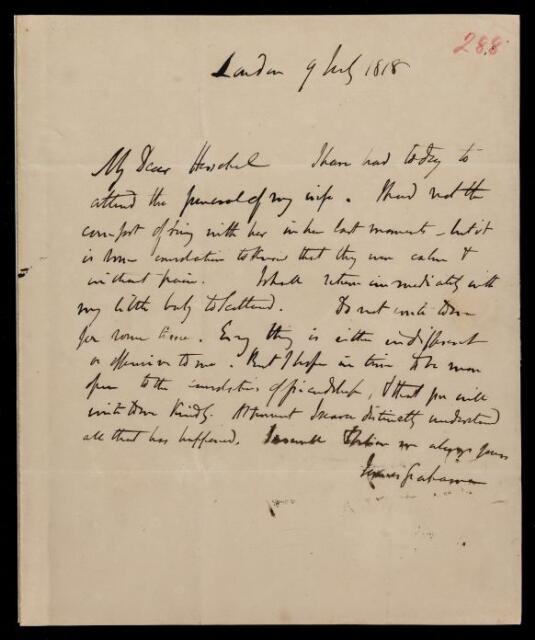 288
London 9 July 1818
My Dear Herschel I have had to day to
attend the funeral of my wife. I had not the
comfort of being with her in her last moments - but it
is some consolation to know that they were calm &
without pain. I shall return immediately with
my little baby to Scotland. Do not write to me
for some time. Every thing is either indifferent
or offensive to me. But I hope in time to be more
open to the consolation of friendship, & that you will
write to me kindly. At present I scarce distinctly understand
all that has happened. always yours
James Grahame